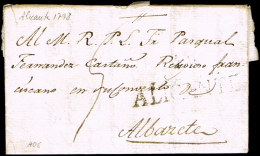 Alicante 1798
Al M. R. P. L. Fr Pasqual
Fernandez Castaño Religioso fran-
ciscano en su Convento de
ALICANTE
Albacete